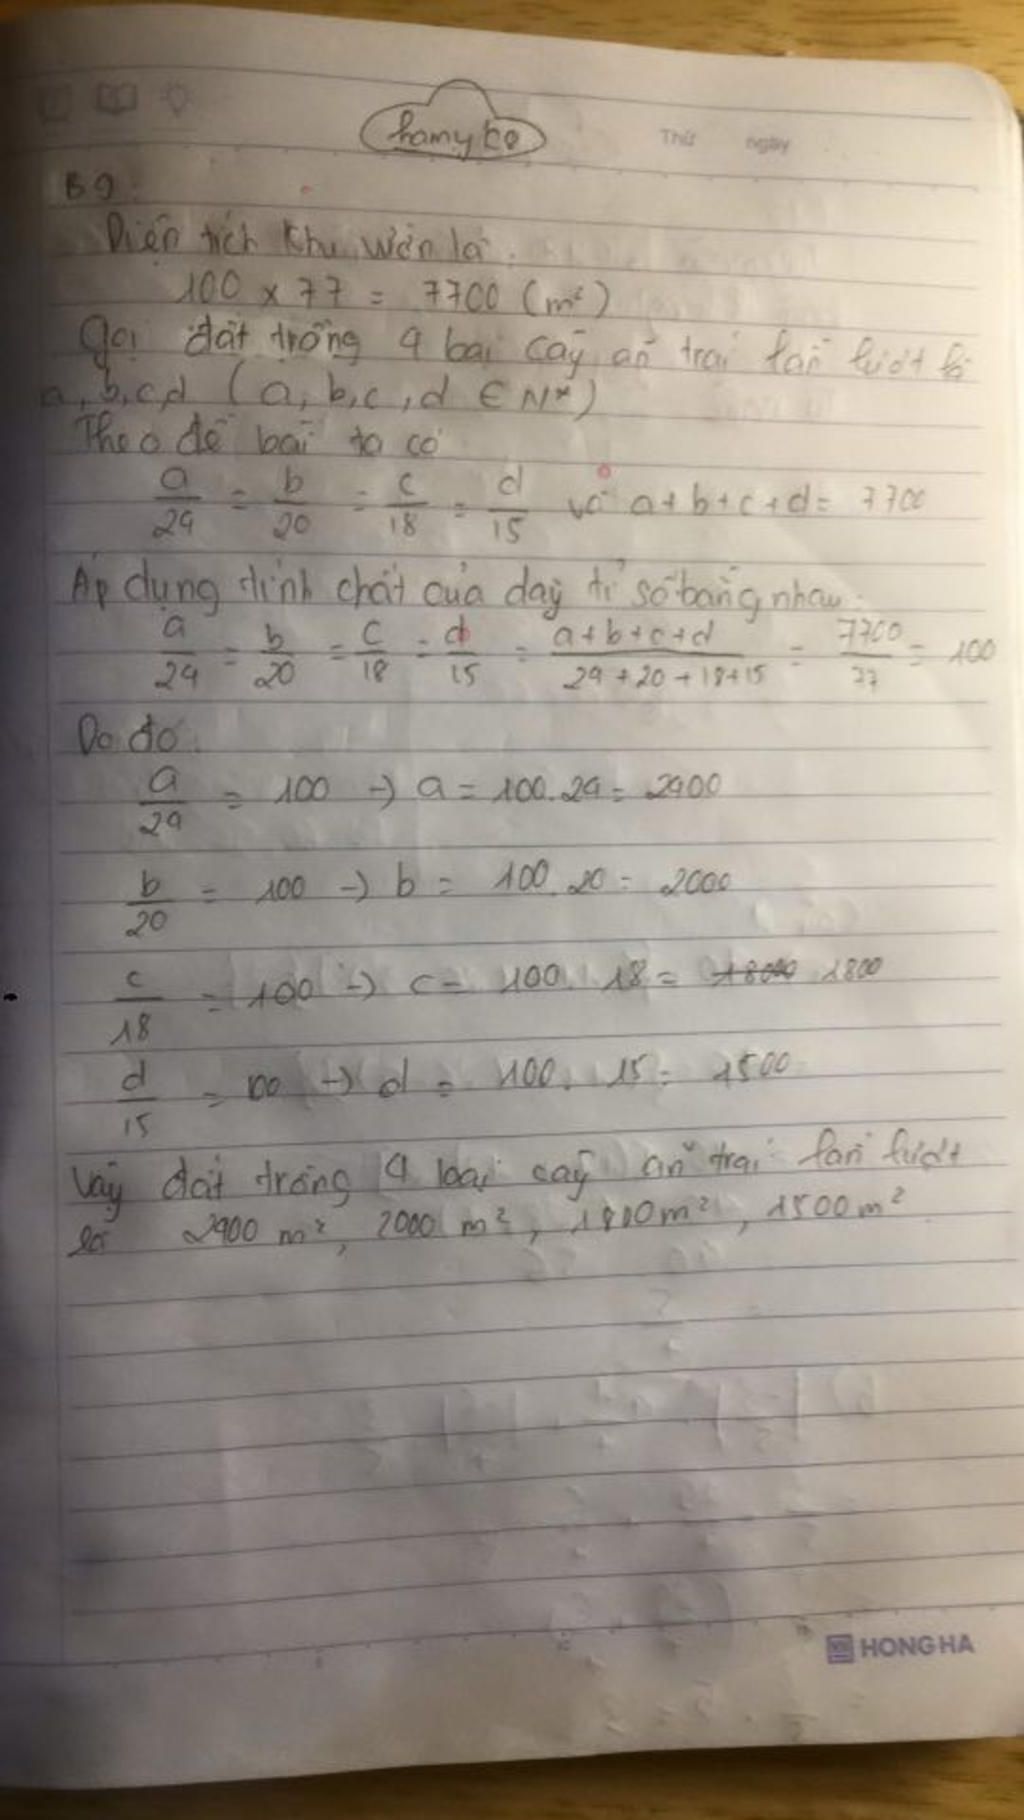 hamy ko
Thứ ngày
B9:
Diện tích khu vườn là:
100 x 77 = 7700 (m²)
Gọi đất trồng 4 loại cây ăn trái lần lượt là
a, b, c, d (a, b, c, d ∈ N*)
Theo đề bài ta có
a/24 = b/20 = c/18 = d/15 và a+b+c+d = 7700
Áp dụng tính chất của dãy tỉ số bằng nhau:
a/24 = b/20 = c/18 = d/15 = a+b+c+d/24+20+18+15 = 7700/77 = 100
Do đó:
a/24 = 100 → a = 100.24 = 2400
b/20 = 100 → b = 100.20 = 2000
c/18 = 100 → c = 100.18 = 1800
d/15 = 100 → d = 100.15 = 1500
Vậy đất trồng 4 loại cây ăn trái lần lượt
là 2400 m², 2000 m², 1800 m², 1500 m²
HONG HA